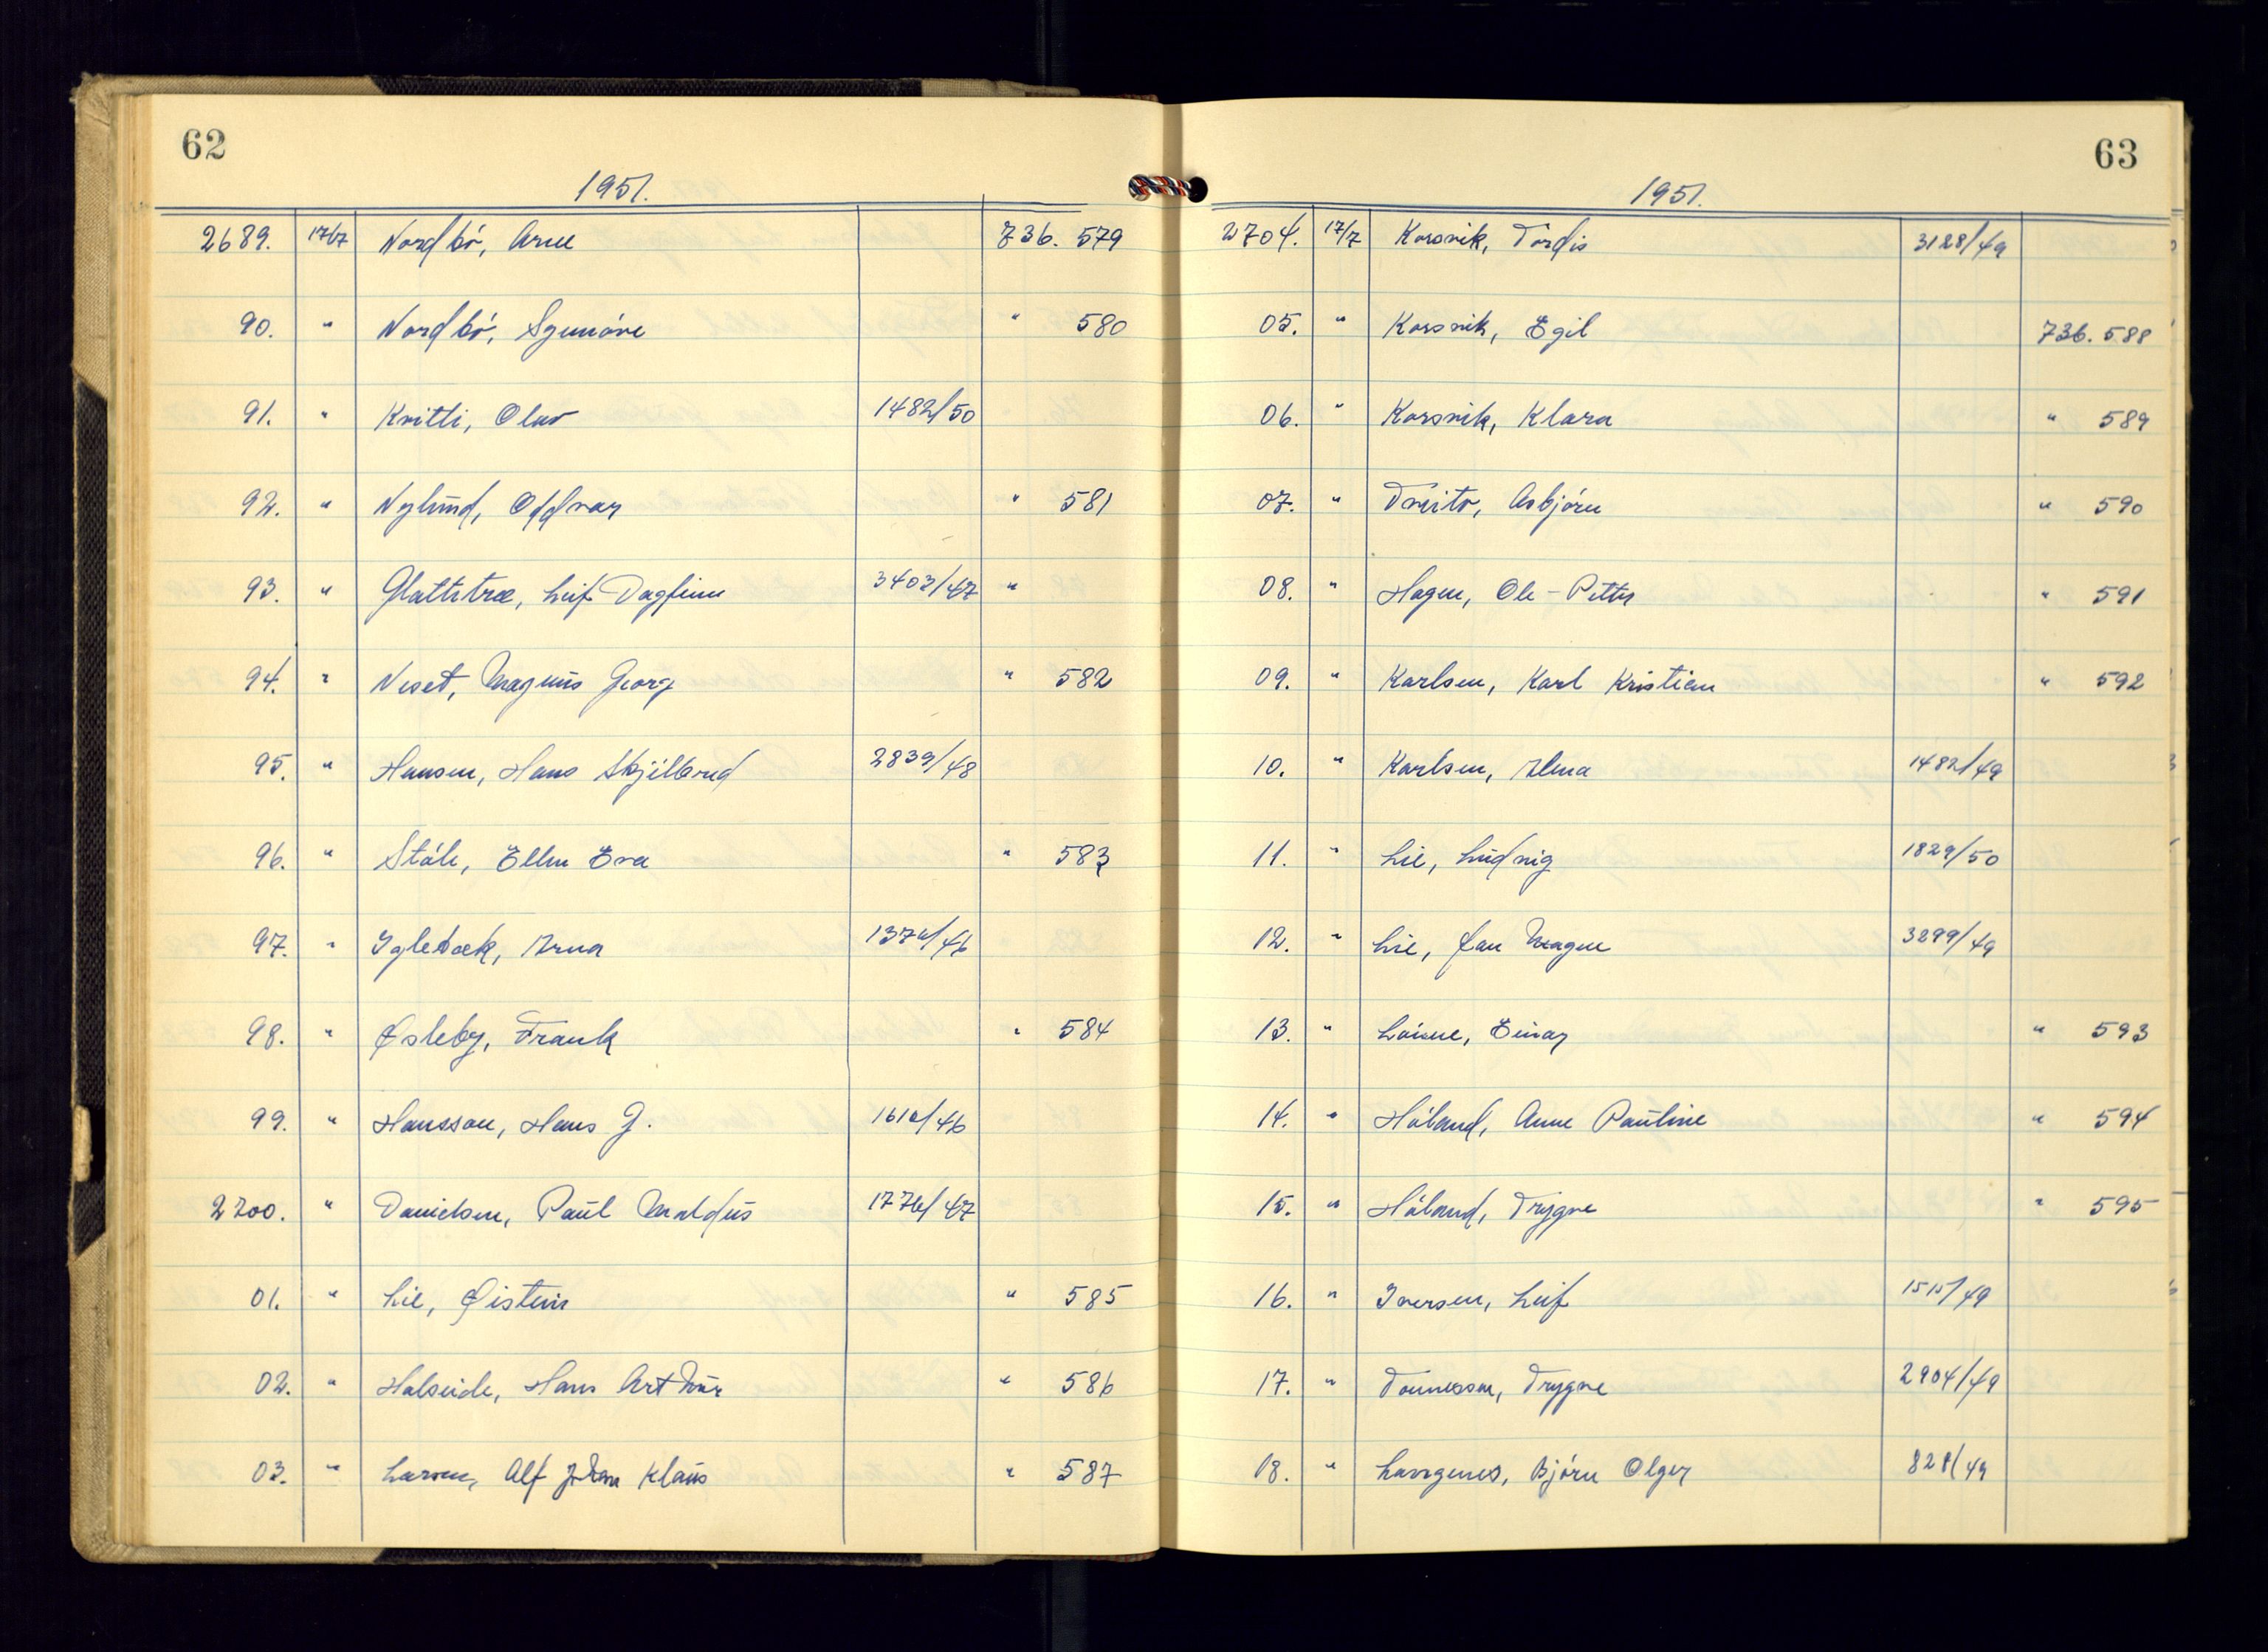 62
1951.
2689. 17/7 Nordbö, Arne 736. 579
90. " Nordbö, Synnöve " 580
91. " Kvitli, Olav 1482/50
92. " Nylund, Oddvar " 581
93. " Glattetræ, Leif Dagfinn 3403/47 "
94. " Neset, Magnus Georg " 582
95. " Hansen, Hans Skjilbred 2839/48
96. " Ståle, Ellen Eva " 583
97. " Iglebæk, Arna /46
98. " Øsleby, Frank " 584
99. " Hansson, Hans G. /46
2700. " Danielsen, Paul Maldus 1776/47
01. " Lie, Øistein " 585
02. " Halseide, Hans Arthur " 586
03. " Larsen, Alf Johan Klaus " 587
63
1951.
2704. 17/7 Korsvik, Tordis 3128/49
05. " Korsvik, Egil 736. 588
06. " Korsvik, Klara " 589
07. " Tveito, Asbjörn " 590
08. " Hagen, Ole-Petter " 591
09. " Karlsen, Karl Kristian " 592
10. " Karlsen, Alma 1482/49
11. " Lie, Ludvig 1829/50
12. " Lie, Jan Magne 3299/49
13. " Einar " 593
14. " Håland, Anne Pauline " 594
15. " Håland, Trygve " 595
16. " Iversen, Leif 1515/49
17. " Tönnessen, Trygve 2904/49
18. " Langenes, Björn Olger 828/49